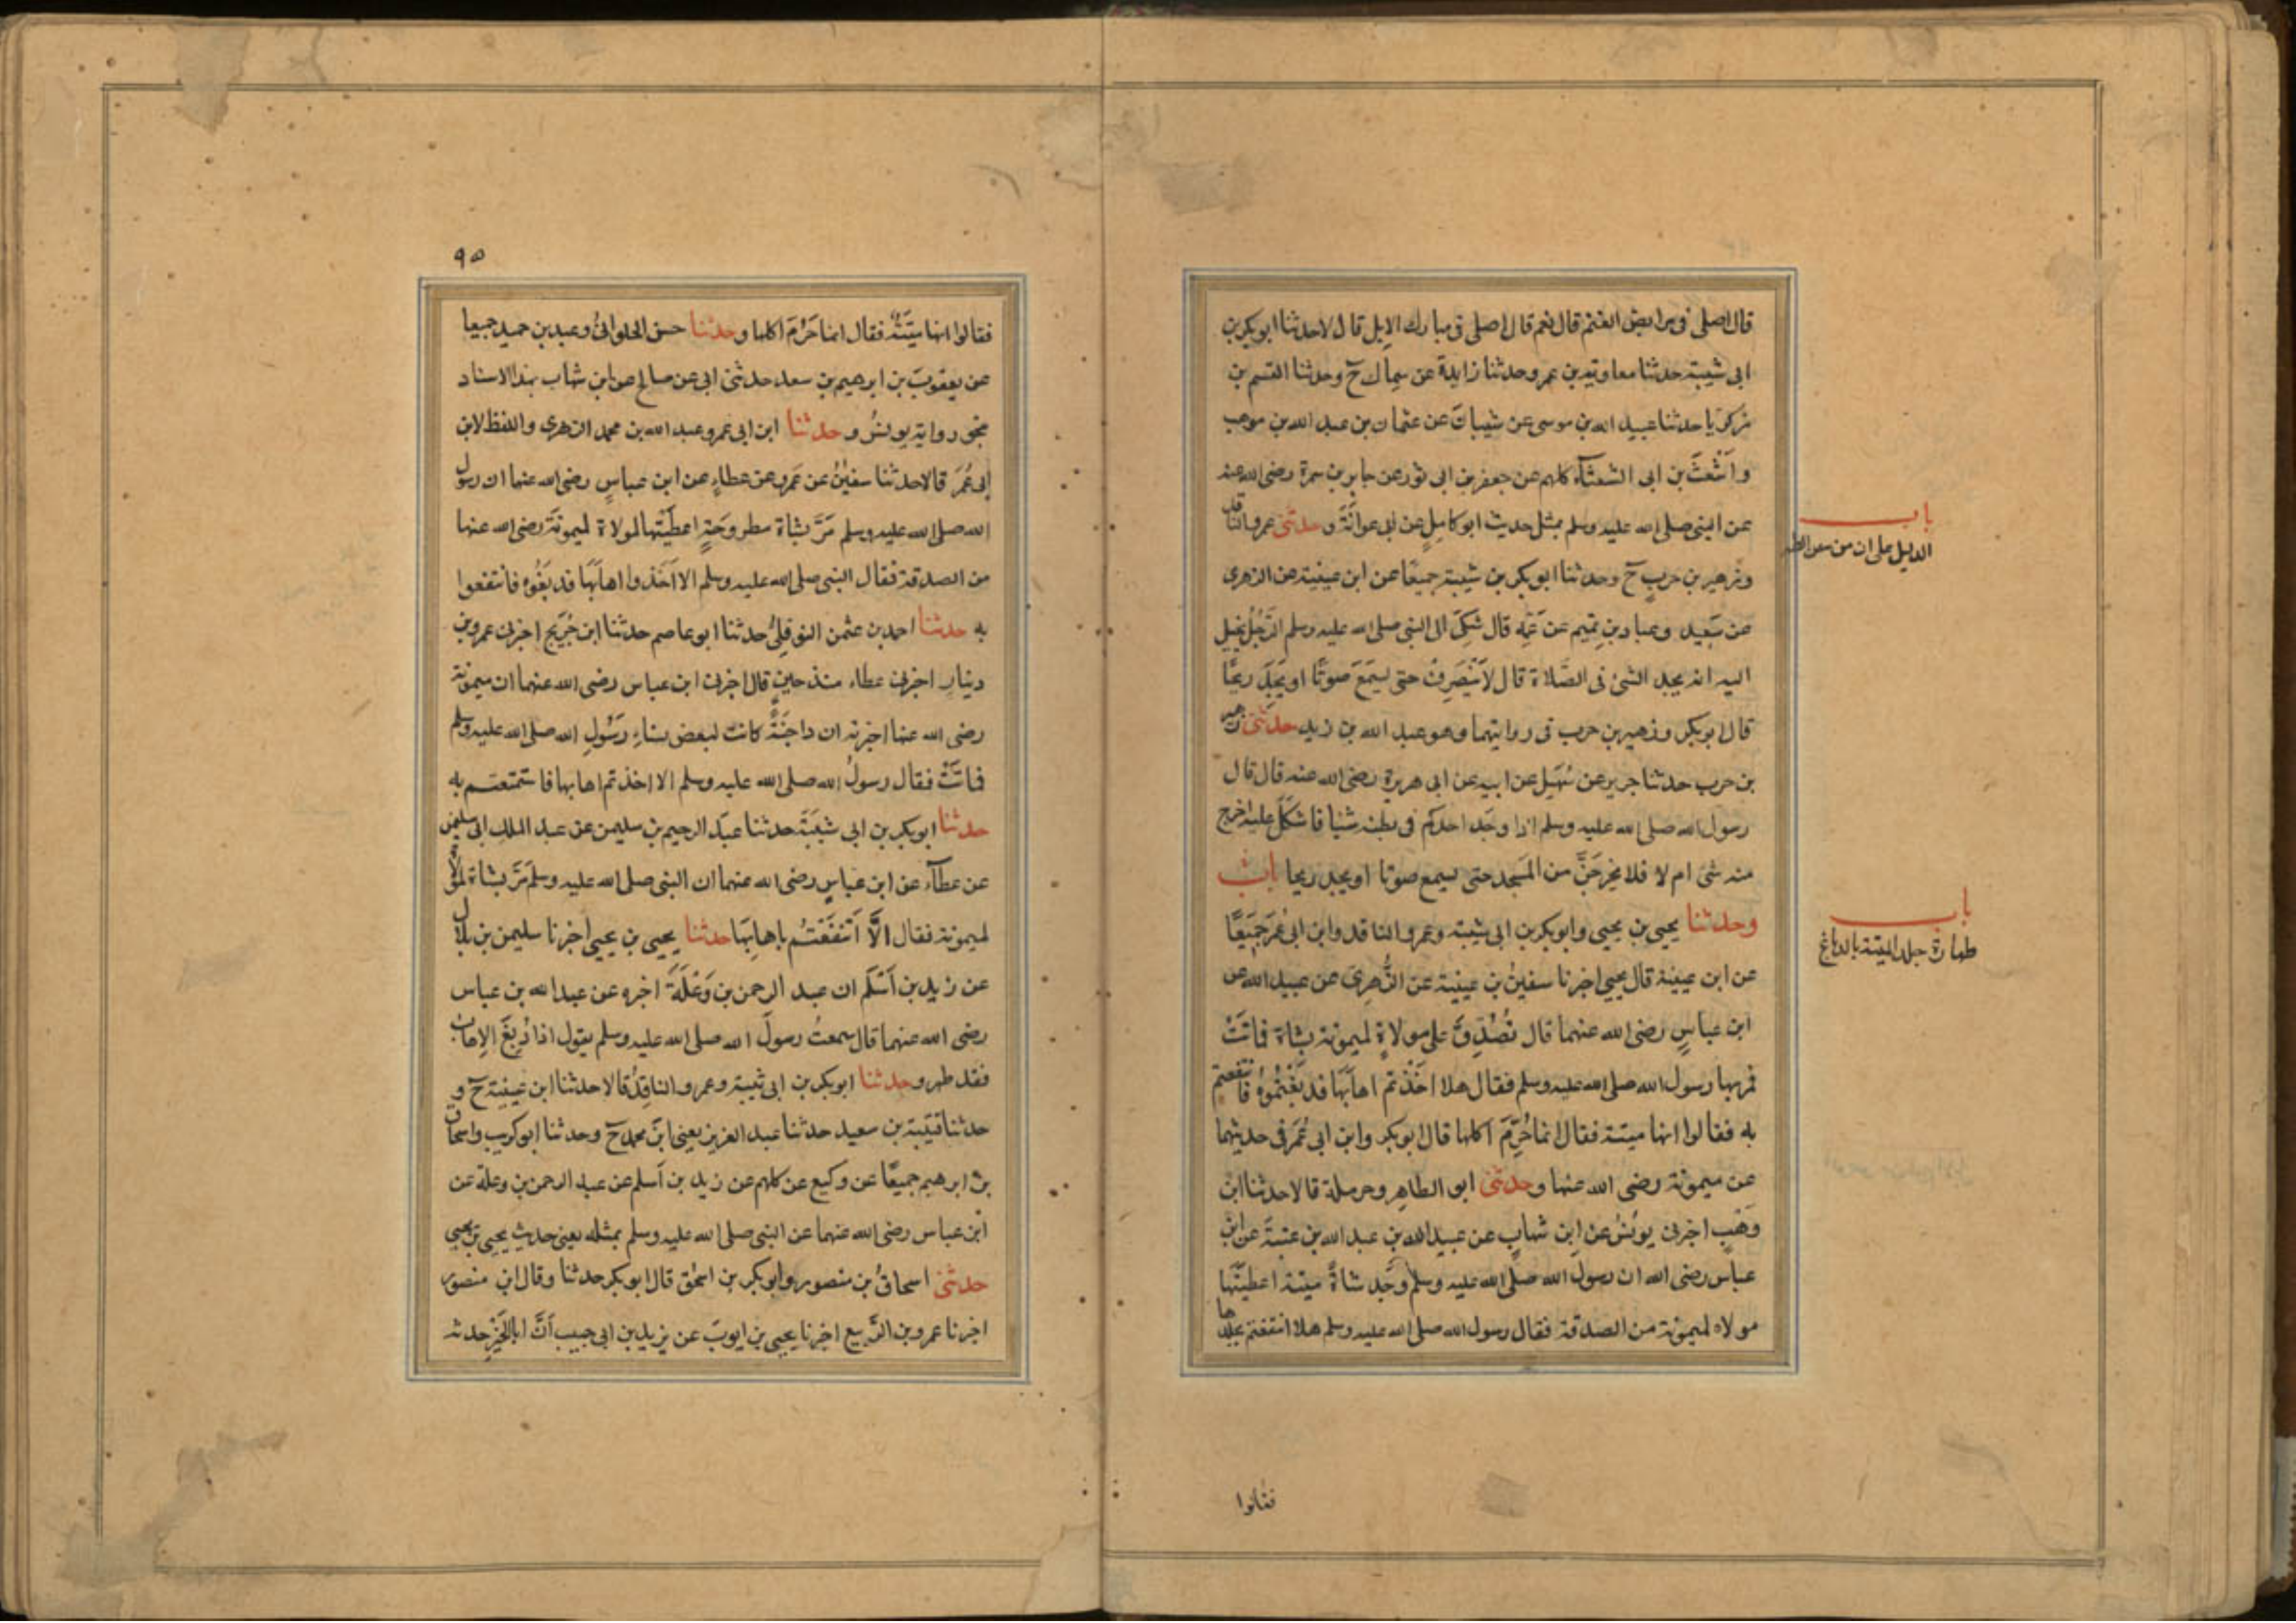 قال اصلى فى مرابض الغنم قال نعم قال اصلى فى مبارك الابل قال لا حدثنا ابو بكر بن
ابى شيبة حدثنا معاوية بن عمرو حدثنا زايدة عن سماك ح وحدثنا القسم بن
زكريا حدثنا عبيد الله بن موسى عن شيبان عن عثمان بن عبد الله بن موهب
واَشْعَثَ بن ابى الشعثآء كلهم عن جعفر بن ابى ثور عن جابر بن سمرة رضى الله عنه
عن النبى صلى الله عليه وسلم بمثل حديث ابو كامِلٍ عن ابى عوانَةَ وحدثنى عمرو الناقد
باب
الدليل على ان من
وزهير بن حربٍ ح وحدثنا ابو بكر بن شيبة جميعًا عن ابن عيينة عن الزهرى
عن سَعِيد وعباد بن تميم عن عَمِّه قال شُكِىَ الى النبى صلى الله عليه وسلم الرَّجُلُ يخيل
اليه انه يجد الشئ فى الصَّلاة قال لاَ يَنْصَرِفُ حتى يسمَعَ صَوتًا او يَجِدَ ريحًا
قال ابو بكر وزهير بن حرب فى روايتهما وهو عبد الله بن زيد حدثنى زهير
بن حرب حدثنا جرير عن سُهَيل عن ابيه عن ابى هريرة رضى الله عنه قال قال
رسول الله صلى الله عليه وسلم اذا وجَد احدكم فى بطنه شيا فاشكَلَ عليه اخرج
منه شئ ام لا فلا يخرجَنَّ من المَسجد حتى يسمع صوتا او يجد ريحا باب
باب
طهارة جلد الميتة بالدباغ
وحدثنا يحيى بن يحيى وابو بكر بن ابى شيبة وعمرو الناقد وابن ابى عُمَرَ جَمِيعًا
عن ابن عيينة قال يحيى اخبرنا سفينُ بن عيينة عن الزُّهرِىَ عن عبيد الله عن
ابن عباسٍ رضى الله عنهما قال تُصُدِّقَ على مولاةٍ لميمونة بشاة فماتَتْ
فمر بها رسول الله صلى الله عليه وسلم فقال هلا اخَذْتم اهابَهَا فدبَغْتُموهُ فانتفعتم
به فقالوا انها ميتة فقال انما حُرِّمَ اكلها قال ابو بكر وابن ابى عُمَرَ فى حديثهما
عن ميمونة رضى الله عنها وحدثنى ابو الطاهِر وحرملة قالا حدثنا ابن
وَهْبٍ اخبرنى يونُسُ عن ابن شهابٍ عن عبيد الله بن عبد الله بن عتبةَ عن ابن
عباس رضى الله ان رسول الله صلى الله عليه وسلم وجَد شاةً ميتة اعطيَتْها
مولاه لميمونة من الصدقة فقال رسول الله صلى الله عليه وسلم هلا انتفعتم بجلدها
فقالوا
٩٥
فقالوا انها ميتَةٌ فقال انما حَرُمَ اكلها وحدثنا حسن الحلوانىُّ وعبد بن حميد جميعا
عن يعقوبَ بن ابرهيم بن سعد حدثنى ابى عن صالح عن ابن شهاب بهذا الاسناد
بنحو رواية يونسُ وحدثنا ابن ابى عمر وعبد الله بن محمد الزهرى واللفظ لابن
ابى عُمَرَ قالا حدثنا سفينُ عن عَمرٍو عن عطاءٍ عن ابن عباسٍ رضى الله عنهما ان رسول
الله صلى الله عليه وسلم مَرَّ بشاة مطروحَةٍ اعطَيَتْها لمولاة لميمونَةَ رضى الله عنها
من الصدقة فقال النبى صلى الله عليه وسلم الا اَخَذوا اهابَهَا فدبَغُوهُ فانتفعوا
به حدثنا احمد بن عثمن النوفلِىُّ حدثنا ابو عاصم حدثنا ابن جُرَيجٍ اخبرنى عمرو بن
دينارٍ اخبرنى عطاء منذ حينٍ قال اخبرنى ابن عباس رضى الله عنهما ان ميمونة
رضى الله عنها اخبرته ان داجنَةً كانت لبعض نساءِ رَسُولِ الله صلى الله عليه وسلم
فماتَتْ فقال رسولُ الله صلى الله عليه وسلم الا اخذتم اهابها فاستمتعتم به
حدثنا ابو بكر بن ابى شيبَةَ حدثنا عبدَ الرحيم بن سليمن عن عبد الملك ابى سليمن
عن عطآء عن ابن عباسٍ رضى الله عنهما ان النبى صلى الله عليه وسلم مَرَّ بشاة لمولاة
لميمونة فقال الاَّ انتفَعْتُم باهابِهَا حدثنا يحيى بن يحيى اخبرنا سليمن بن بلال
عن زيد بن اَسْلَم ان عبد الرحمن بن وَعْلَةَ اخبره عن عبد الله بن عباس
رضى الله عنهما قال سمعتُ رسولَ الله صلى الله عليه وسلم يقول اذا دُبِغَ الاِهابُ
فقد طهر وحدثنا ابو بكر بن ابى شيبة وعمرو الناقِدُ قالا حدثنا ابن عيينة ح و
حدثنا قتيبة بن سعيد حدثنا عبد العزيز يعنى ابن محمد ح وحدثنا ابو كريب واسحاق
بن ابرهيم جميعًا عن وكيع عن كلهم عن زيد بن اسلم عن عبد الرحمن بن وعلة عن
ابن عباس رضى الله عنهما عن النبى صلى الله عليه وسلم بمثله يعنى حديث يحيى بن يحيى
حدثنى اسحاقُ بن منصور وابو بكر بن اسحٰق قال ابو بكر حدثنا وقال ابن منصور
اخبرنا عمرو بن الرَّبيع اخبرنا يحيى بن ايوبَ عن يزيد بن ابى حبيب اَنَّ ابا الخَيْرِ حدثه